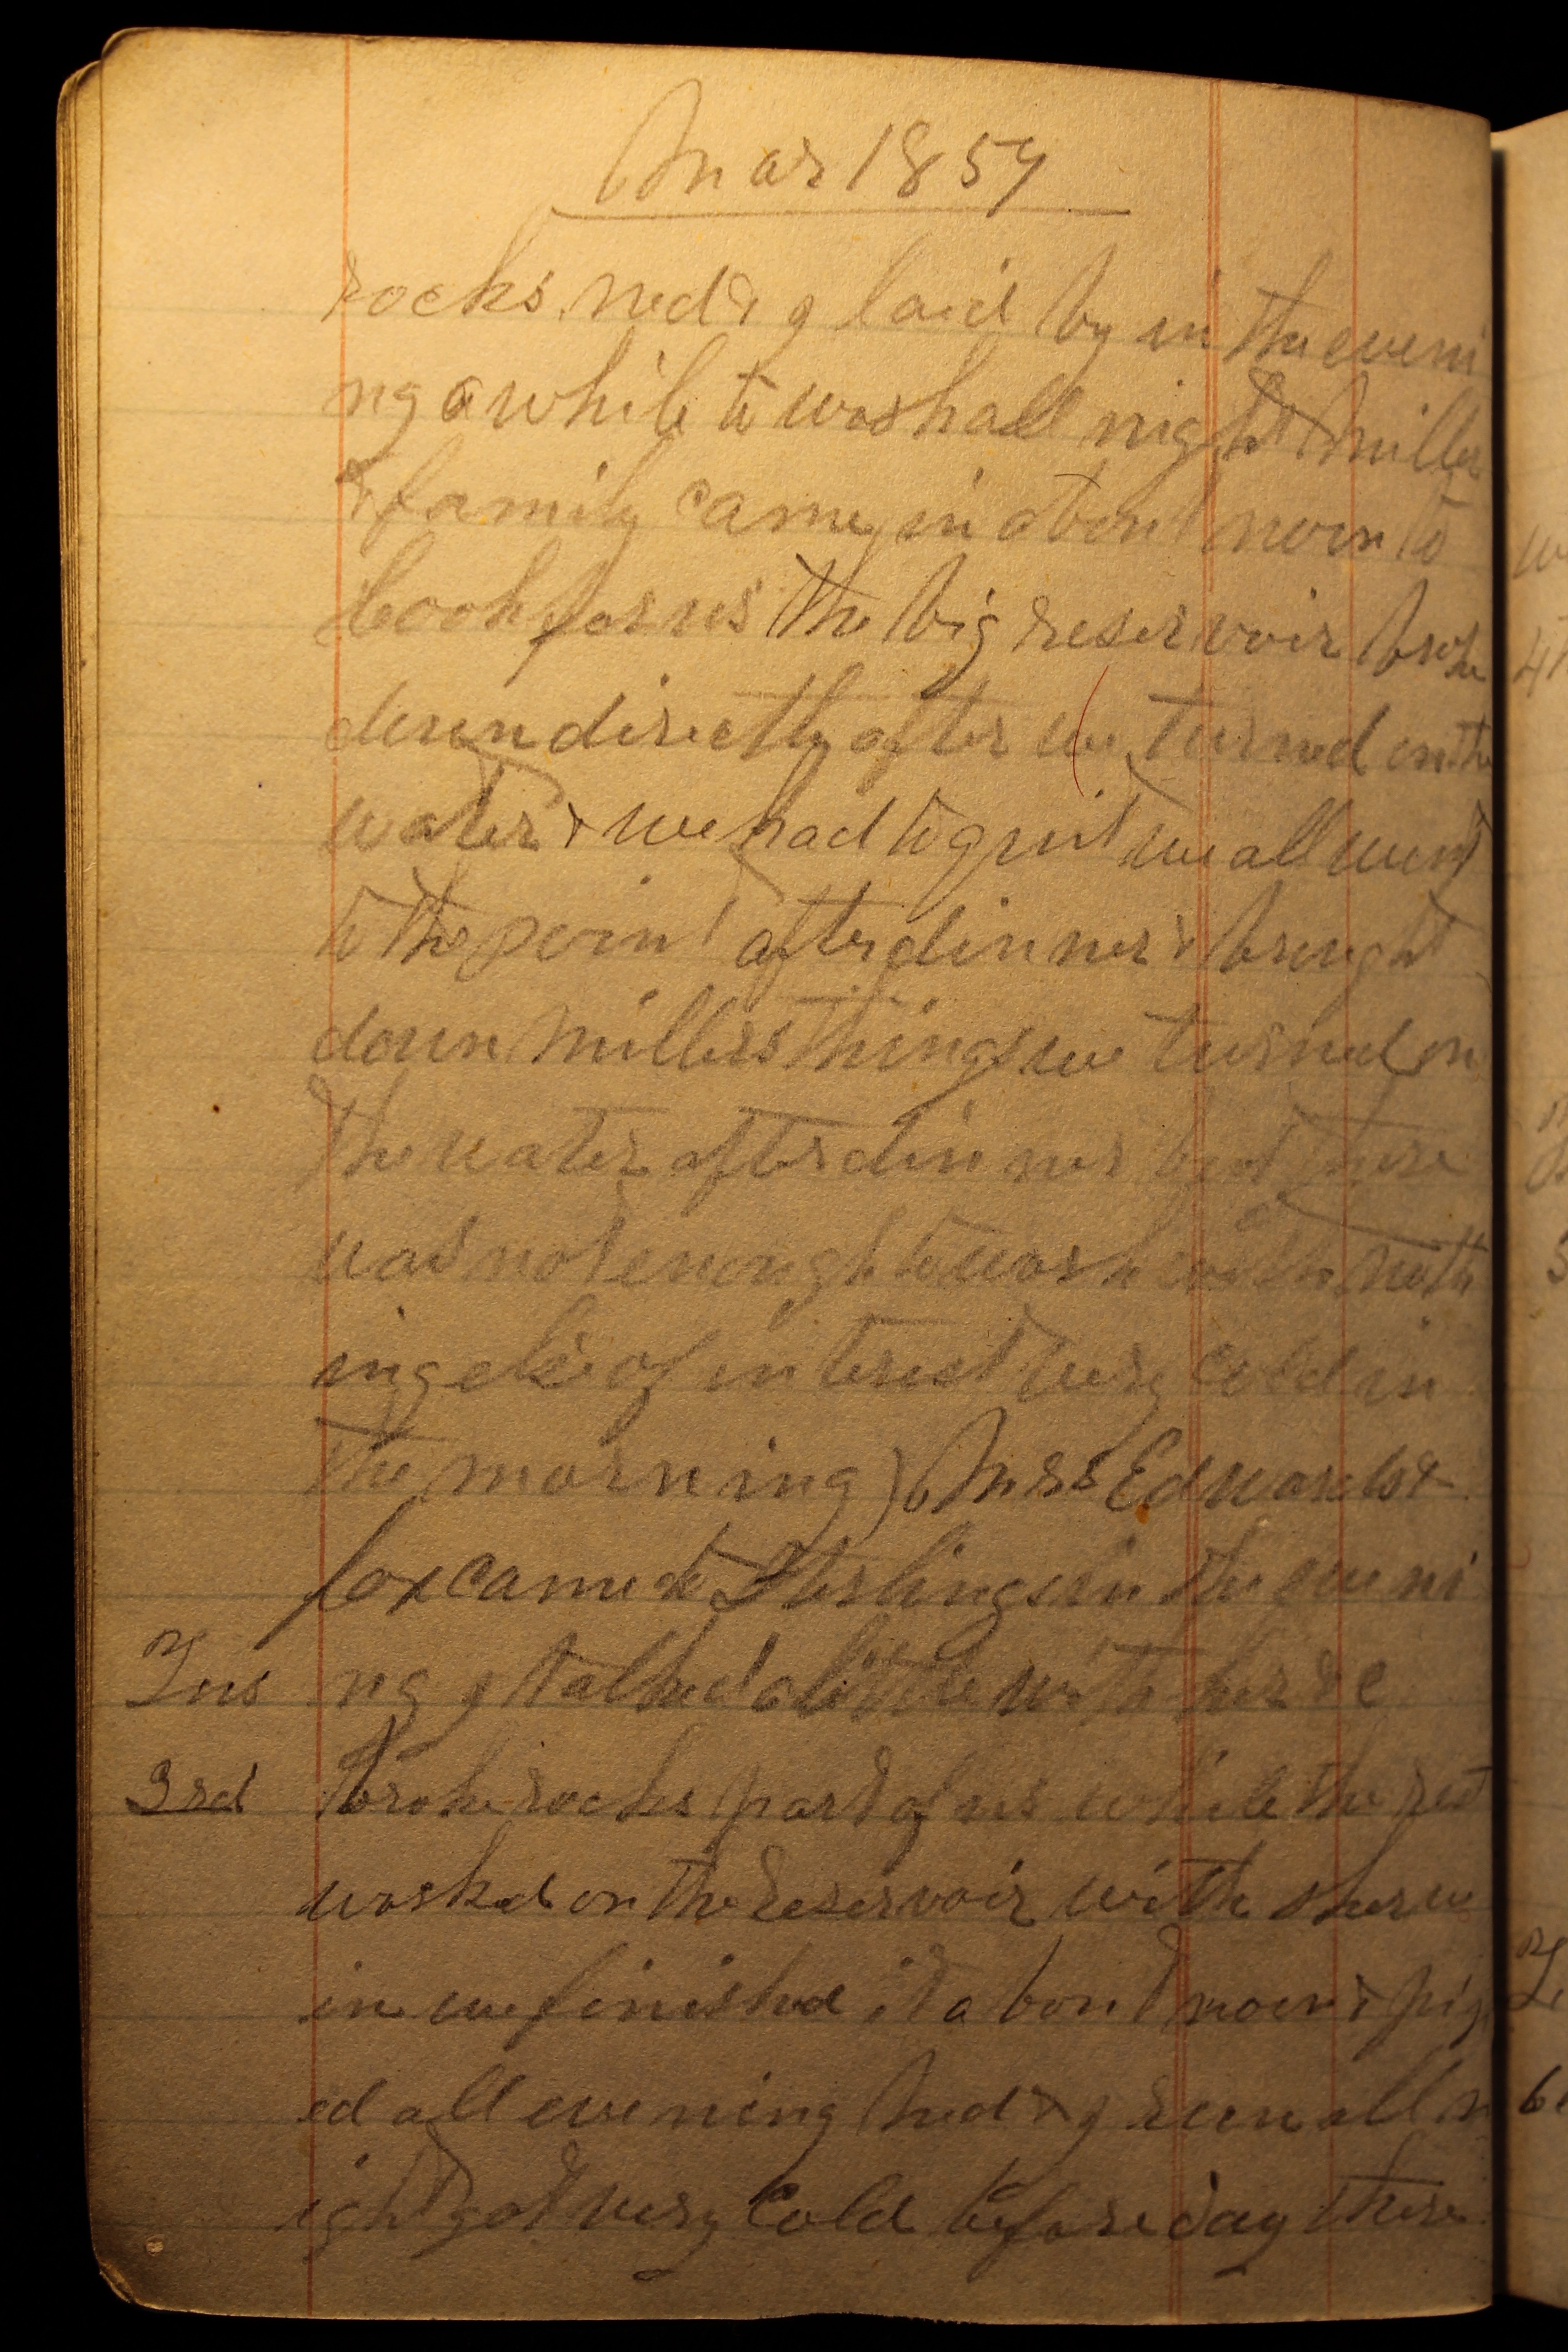 Mar 1857
rocks. ned & I laid by in the eveni
ng a while to wash all night Miller
& family came in about noon to
Cook for us the big reservoir broke
down directly after we turned on the
water & we had to quit we all went
to the point after dinner & brought
down Millers things we turned on
the water after dinner but there
was not enough to wash with noth
ing else of interest very cold in
the morning) Mrs Edwards &
fox came to Sterlings in the eveni
ng I talked a little with her & c
3rd broke rocks part of us while the rest
worked on the reservoir with
in we finished it about noon &
ed all evening ned & I run all n
ight got very Cold before day there